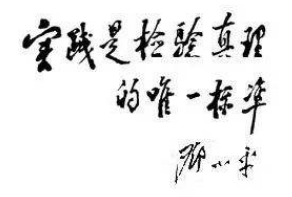 实践是检验真理
的唯一标准
邓小平